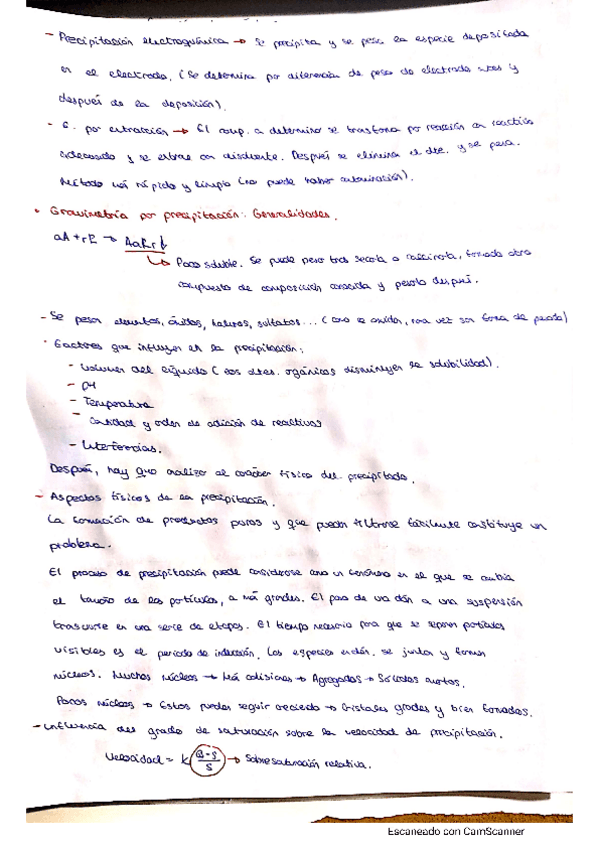 - Precipitación electroquímica → Se precipita y se pesa la especie depositada
en el electrodo. (Se determina por diferencia de peso de electrodo antes y
después de la deposición).
- G. por extracción → El comp. a determinar se trasforma por reacción con reactivo
adecuado y se extrae con disolvente. Después se elimina el dte. y se pesa.
Método más rápido y limpio (no puede haber contaminación).
• Gravimetría por precipitación: Generalidades.
aA + rR → AaRr↓
↳ Poco soluble. Se puede pesar tras secarla o calcinarla, formando otro
compuesto de composición conocida y pesarlo después.
- Se pesan elementos, óxidos, haluros, sulfatos... ( una vez son forma de pesada)
· Factores que influyen en la precipitación:
- Volumen del líquido ( los dtes. orgánicos disminuyen la solubilidad).
- pH
- Temperatura
- Cantidad y orden de adición de reactivos
- Interferencias.
Después, hay que analizar el carácter físico del precipitado.
- Aspectos físicos de la precipitación.
La formación de productos puros y que puedan filtrarse fácilmente constituye un
problema.
El proceso de precipitación puede considerarse como un en el que se cambia
el tamaño de las partículas, a más grandes. El paso de una dón a una suspensión
trascurre en una serie de etapas. El tiempo necesario para que se separen partículas
visibles es el periodo de inducción. Las especies se juntan y forman
núcleos. Muchos núcleos → Más colisiones → Agregados → Sólidos
Pocos núcleos → Estos pueden seguir creciendo → Cristales grandes y bien formados.
- Influencia del grado de saturación sobre la velocidad de precipitación.
Velocidad = k (Q-S/S) → Sobresaturación relativa.
Escaneado con CamScanner